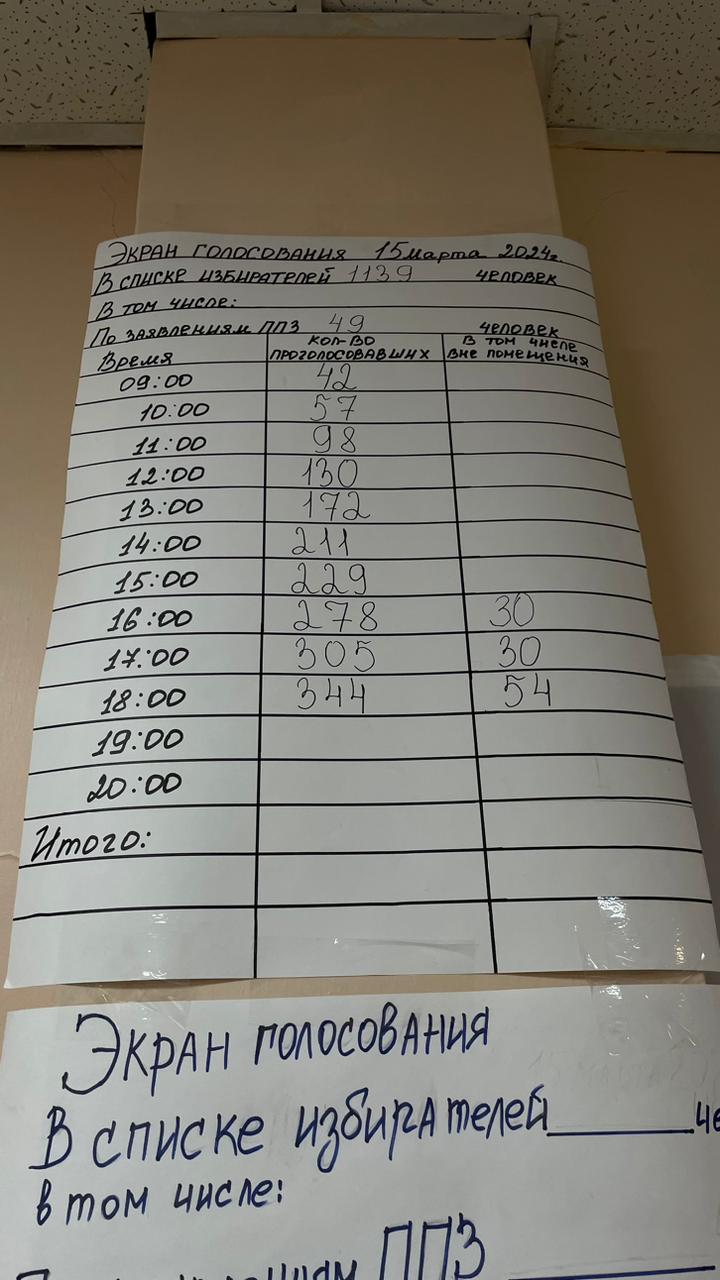 Экран голосования 15 марта 2024г.
В списке избирателей 1139 человек
В том числе:
По заявлениям ППЗ 49 человек
Время кол-во проголосовавших в том числе вне помещения
09:00 42
10:00 57
11:00 98
12:00 130
13:00 172
14:00 211
15:00 229
16:00 278 30
17:00 305 30
18:00 344 54
19:00
20:00
Итого:
Экран голосования
В списке избирателей че
в том числе:
ППЗ